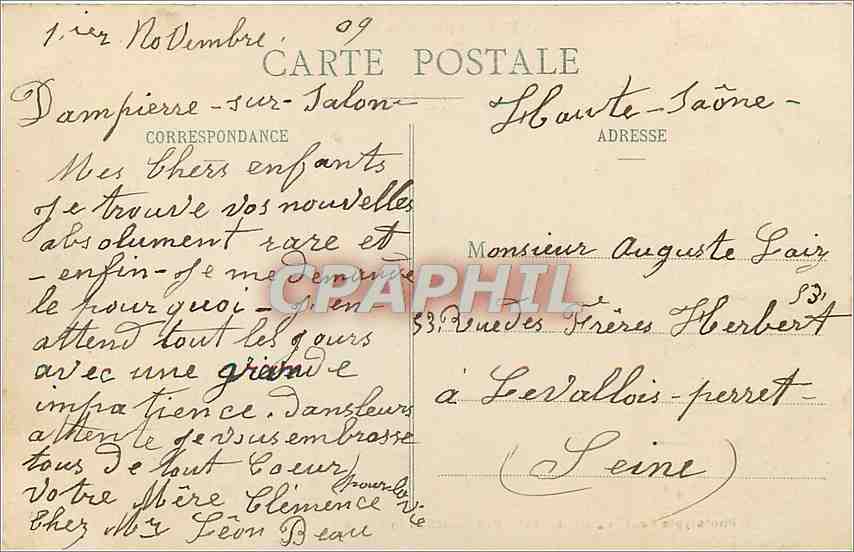 1.ier Novembre. 09
CARTE POSTALE
Dampierre-sur-Salon- Haute-Saône-
CORRESPONDANCE
ADRESSE
Mes Chers enfants
Je trouve vos nouvelles
absolument rare et
-enfin-Je me demande
le pourquoi-J'en
attend tout les jours
avec une grande
impatience. Dans leurs
attente Je vous embrasse
tous de tout Coeur
Votre Mêre Clémence pour la vie
Chez Mr Lêon Beau
Monsieur Auguste
53, Rue des Frères Herbert 53,
à Levallois-perret-
(Seine)
CPAPHIL